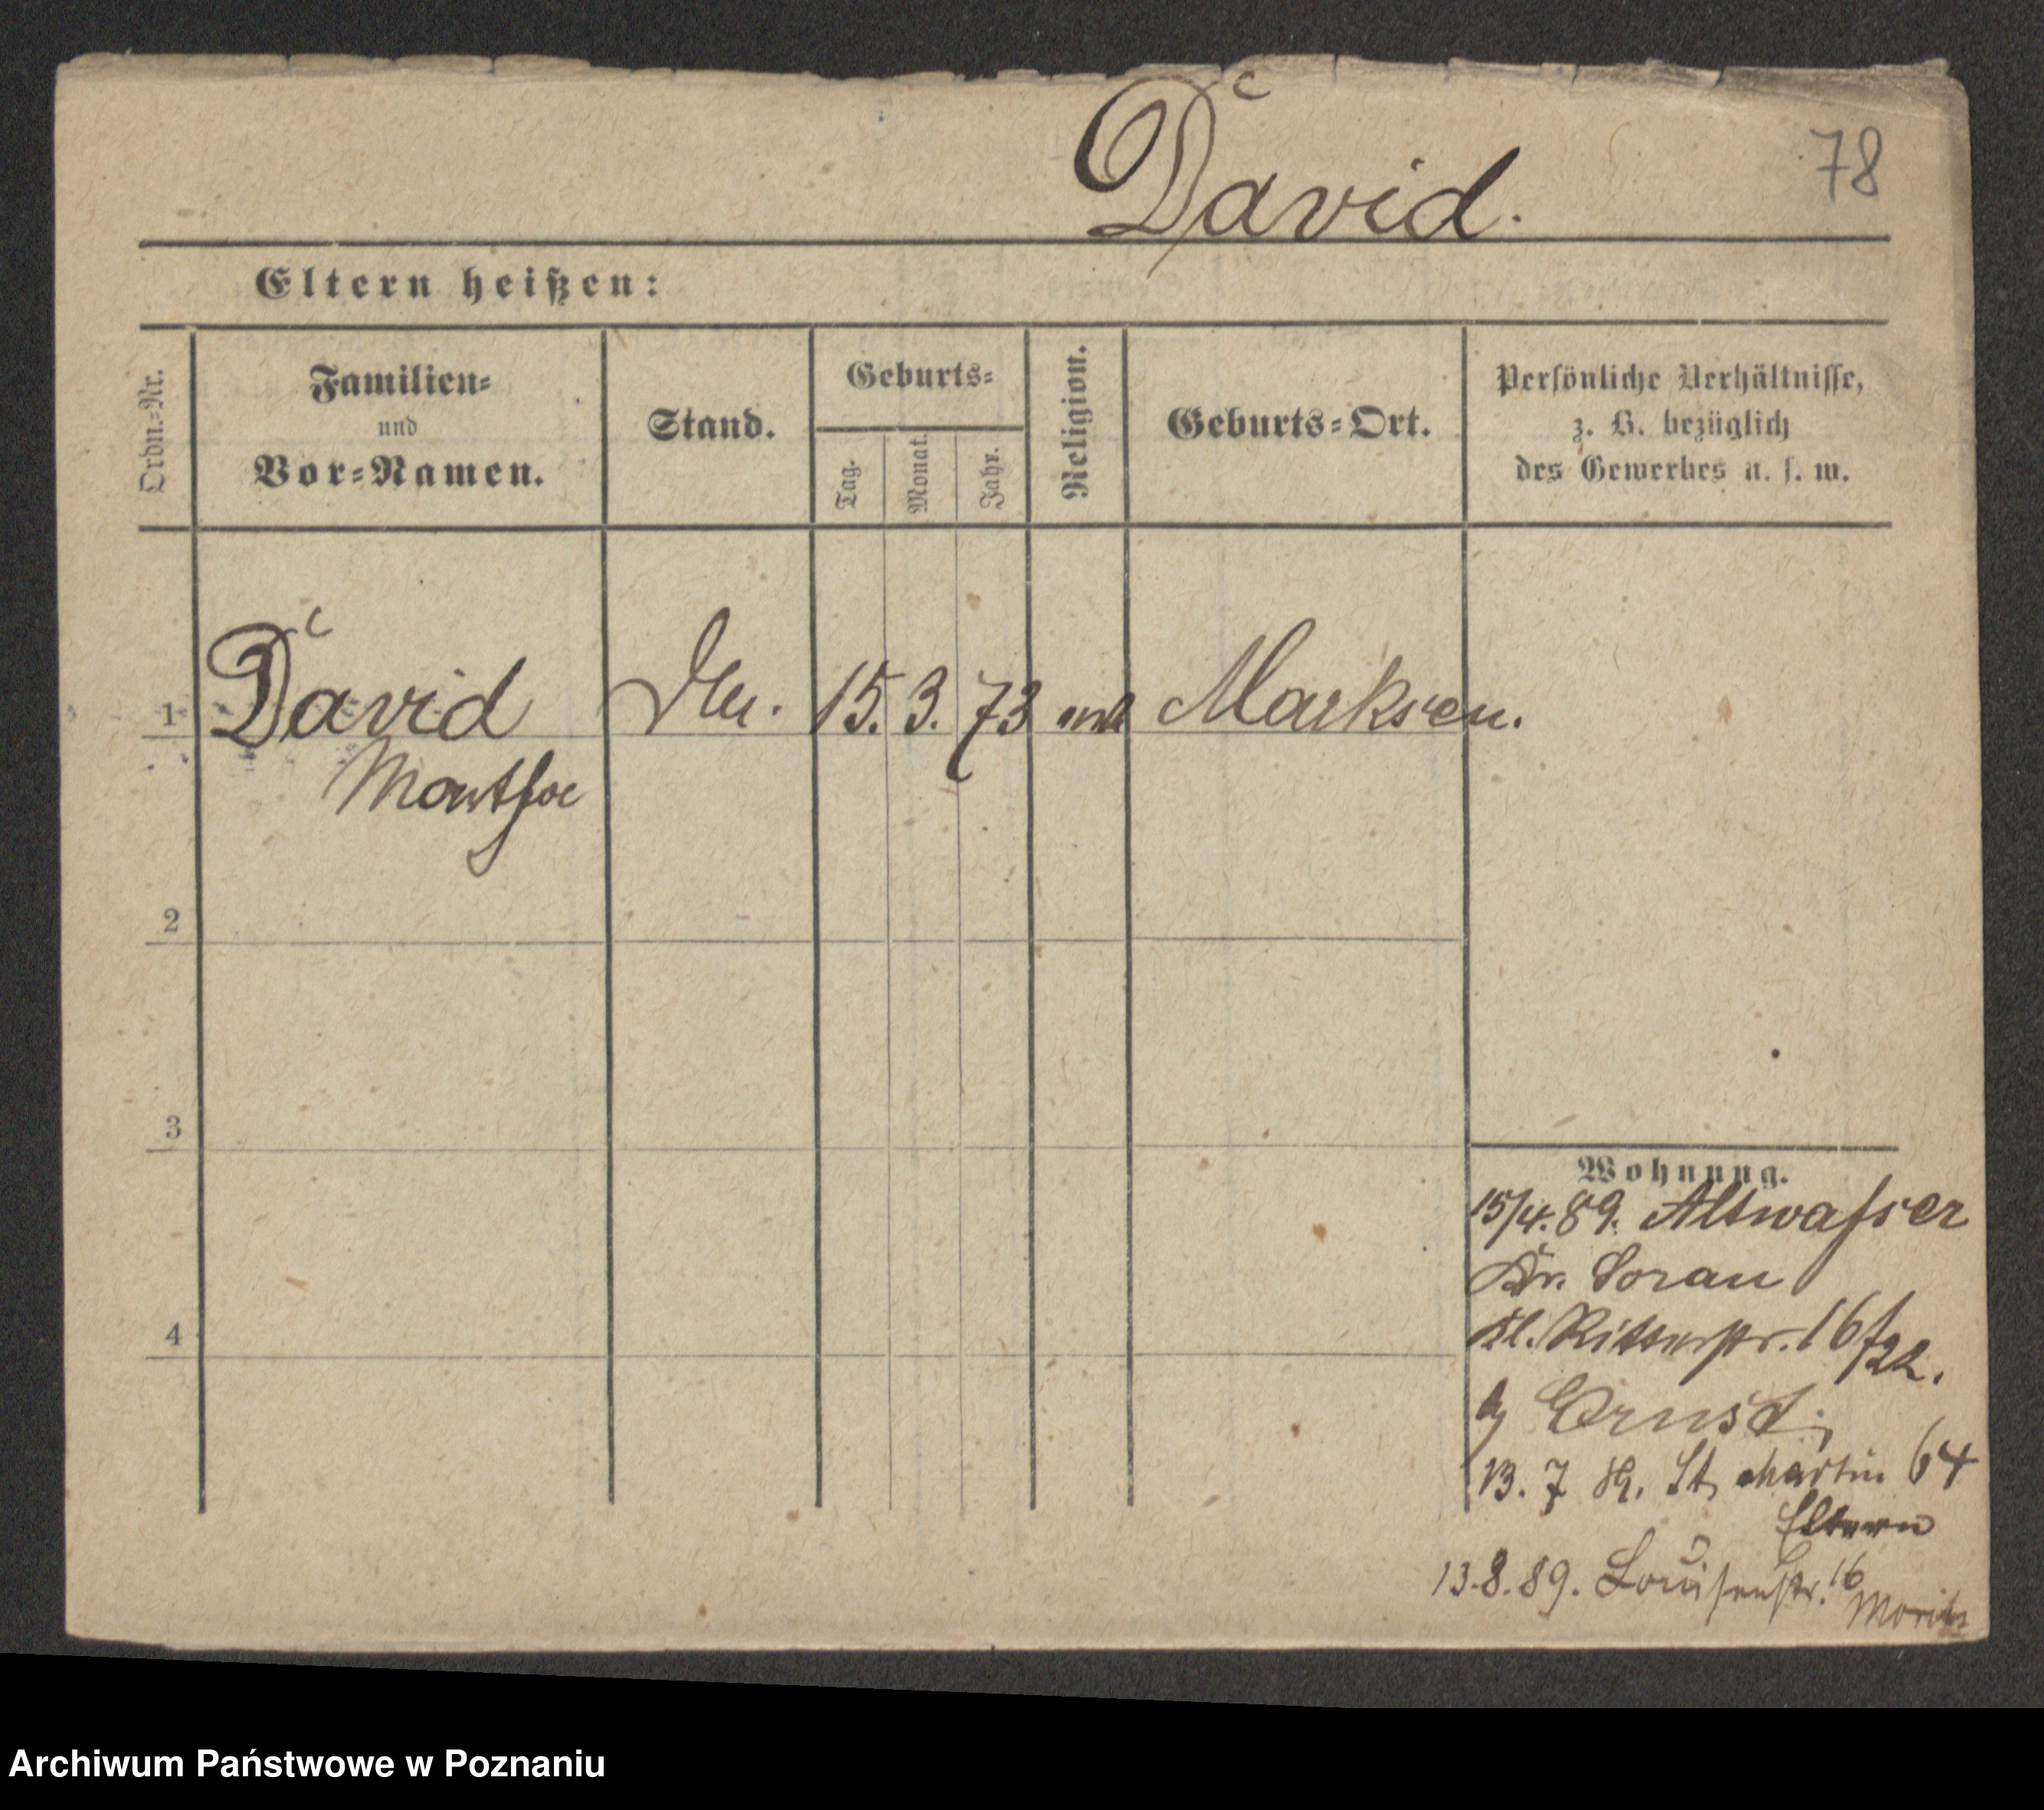 David.
78
Eltern heißen:
Ordn.=Nr.
Familien=
und
Vor=Namen.
Stand.
Geburts=
Tag.
Monat.
Jahr.
Religion.
Geburts=Ort.
Persönliche Verhältnisse,
z. B. bezüglich
des Gewerbes u. s. w.
1 David 15. 3. 73 Marksen.
2
3
4
Wohnung.
15/4. 89. Altwasser
Kr. Sorau
Kl. Ritterstr. 16/22.
Ernst,
13. 7 St. Martin 64
Eltern
13. 8. 89. Louisenstr. 16
Archiwum Państwowe w Poznaniu